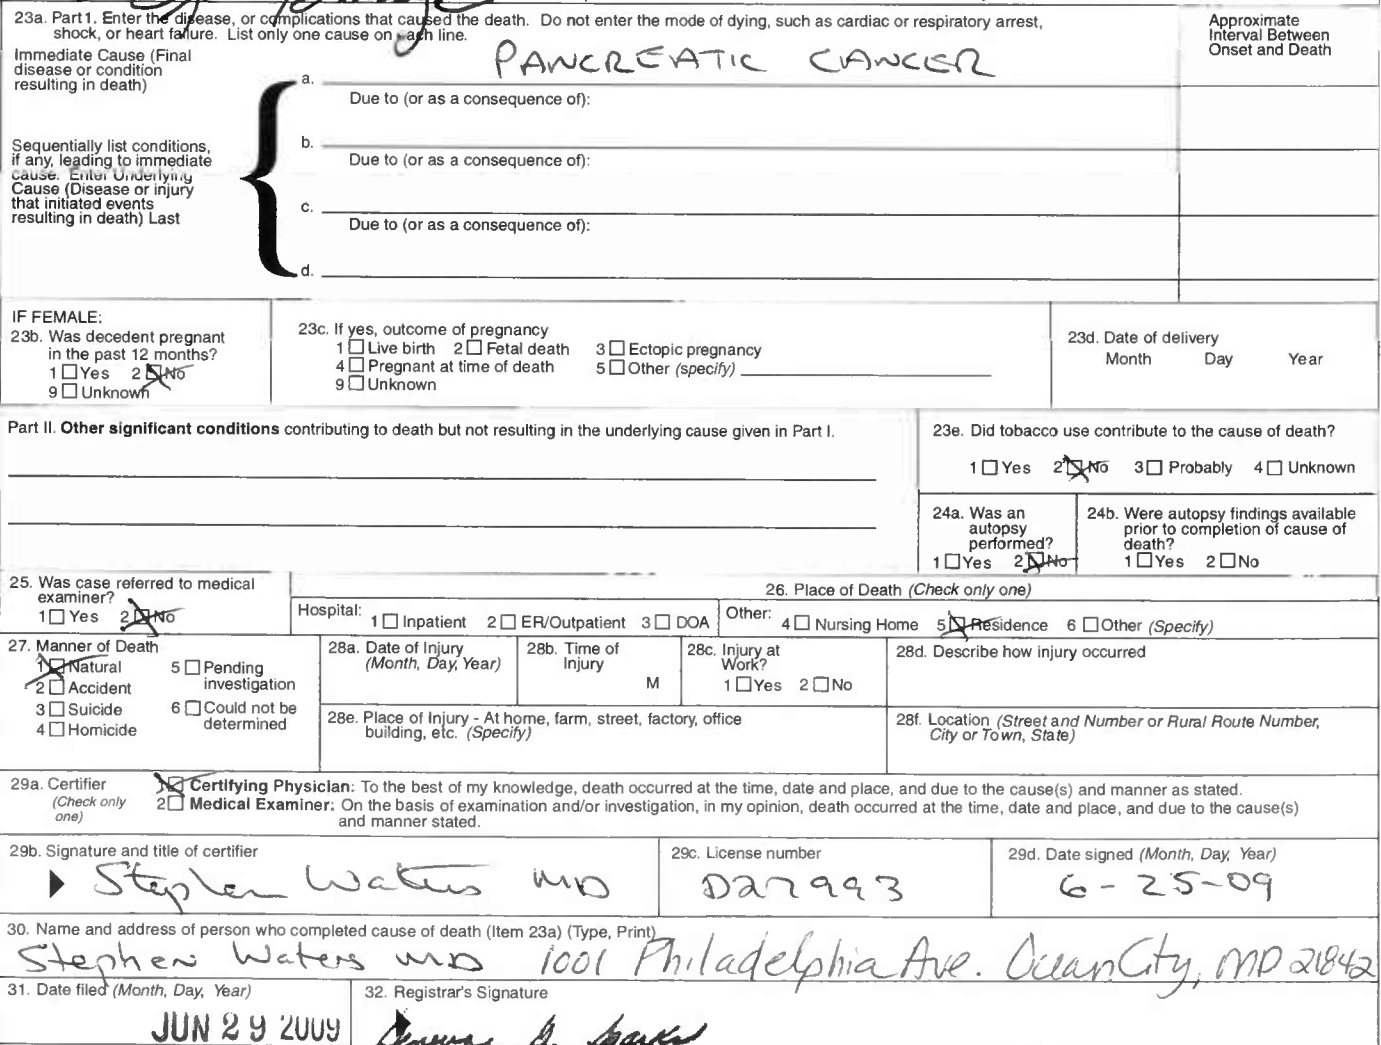 23a. Part 1. Enter the disease, or complications that caused the death. Do not enter the mode of dying, such as cardiac or respiratory arrest,
shock, or heart failure. List only one cause on each line.
Approximate
Interval Between
Onset and Death
Immediate Cause (Final
disease or condition
resulting in death)
a. PANCREATIC CANCER
Due to (or as a consequence of):
Sequentially list conditions,
if any, leading to immediate
cause. Enter Underlying
Cause (Disease or injury
that initiated events
resulting in death) Last
b.
Due to (or as a consequence of):
c.
Due to (or as a consequence of):
d.
IF FEMALE:
23b. Was decedent pregnant
in the past 12 months?
1 ☐ Yes 2 ☒ No
9 ☐ Unknown
23c. If yes, outcome of pregnancy
1 ☐ Live birth 2 ☐ Fetal death 3 ☐ Ectopic pregnancy
4 ☐ Pregnant at time of death 5 ☐ Other (specify)
9 ☐ Unknown
23d. Date of delivery
Month Day Year
Part II. Other significant conditions contributing to death but not resulting in the underlying cause given in Part I.
23e. Did tobacco use contribute to the cause of death?
1 ☐ Yes 2 ☒ No 3 ☐ Probably 4 ☐ Unknown
24a. Was an
autopsy
performed?
1 ☐ Yes 2 ☒ No
24b. Were autopsy findings available
prior to completion of cause of
death?
1 ☐ Yes 2 ☐ No
25. Was case referred to medical
examiner?
1 ☐ Yes 2 ☒ No
26. Place of Death (Check only one)
Hospital: 1 ☐ Inpatient 2 ☐ ER/Outpatient 3 ☐ DOA
Other: 4 ☐ Nursing Home 5 ☒ Residence 6 ☐ Other (Specify)
27. Manner of Death
1 ☒ Natural
2 ☐ Accident
3 ☐ Suicide
4 ☐ Homicide
5 ☐ Pending
investigation
6 ☐ Could not be
determined
28a. Date of Injury
(Month, Day, Year)
28b. Time of
Injury
M
28c. Injury at
Work?
1 ☐ Yes 2 ☐ No
28d. Describe how injury occurred
28e. Place of Injury - At home, farm, street, factory, office
building, etc. (Specify)
28f. Location (Street and Number or Rural Route Number,
City or Town, State)
29a. Certifier
(Check only
one)
1 ☒ Certifying Physician: To the best of my knowledge, death occurred at the time, date and place, and due to the cause(s) and manner as stated.
2 ☐ Medical Examiner: On the basis of examination and/or investigation, in my opinion, death occurred at the time, date and place, and due to the cause(s)
and manner stated.
29b. Signature and title of certifier
Stephen Waters MD
29c. License number
D27993
29d. Date signed (Month, Day, Year)
6-25-09
30. Name and address of person who completed cause of death (Item 23a) (Type, Print)
Stephen Waters MD 1001 Philadelphia Ave. Ocean City, MD 21842
31. Date filed (Month, Day, Year)
JUN 29 2009
32. Registrar's Signature